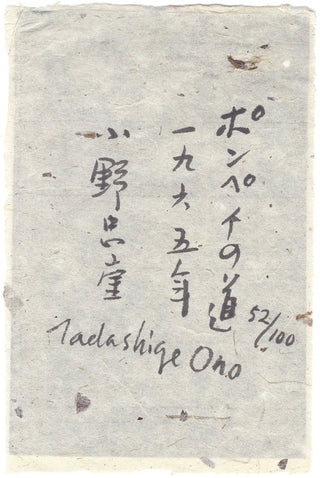 ポンペイの道
一九六五年
小野忠重
52/100
Tadashige Ono